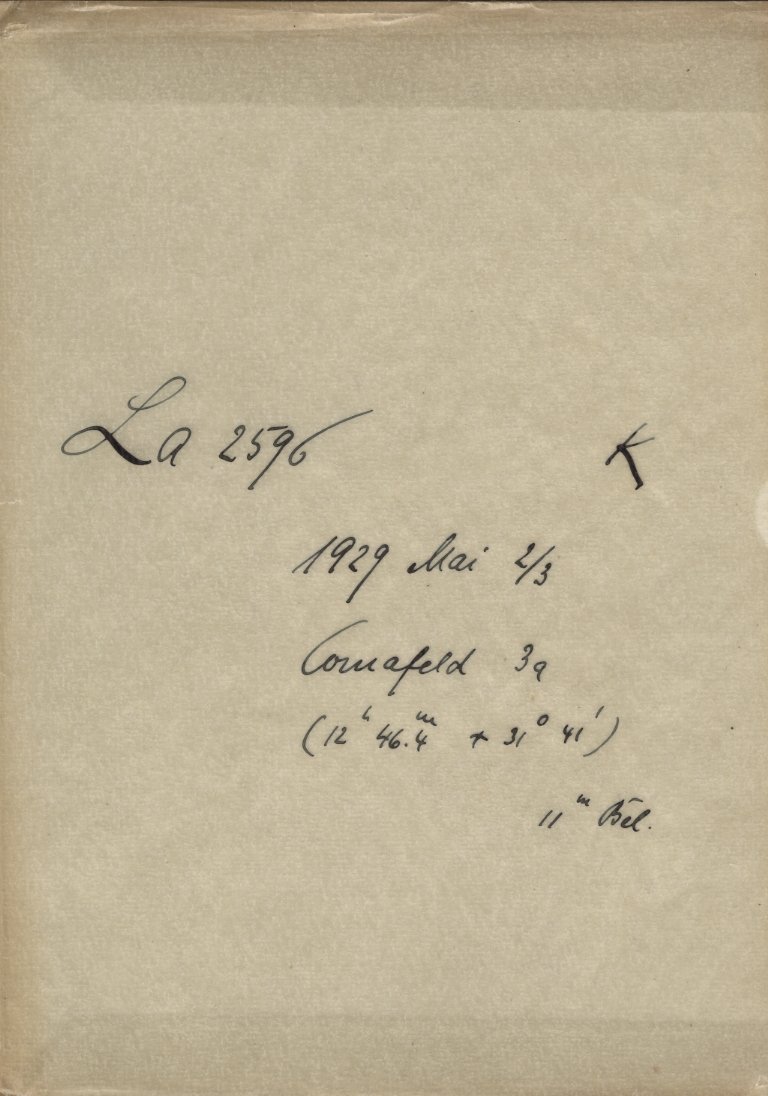 La 2596 K
1929 Mai 2/3
Comafeld 3a
(12ʰ 46.4ᵐ + 31° 41')
11ᵐ Bel.